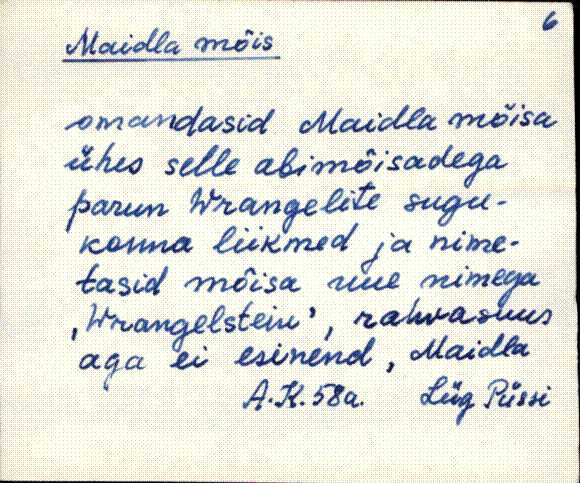 6
Maidla mõis
omandasid Maidla mõisa
ühes selle abimõisadega
parun Wrangelite sugu-
konna liikmed ja nime-
tasid mõisa uue nimega
,Wrangelstein', rahvasuus
aga ei esinend, Maidla
A.K. 58a. Lüg Püssi